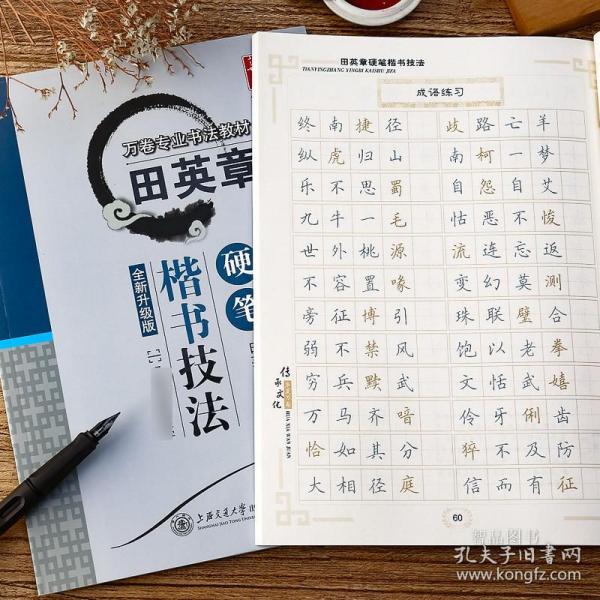 万卷专业书法教材
田英章
硬笔
楷书技法
全新升级版
上海交通大学出
SHANGHAI JIAO TONG UNIVER
田英章硬笔楷书技法
TIANYINGZHANG YINGBI KAISHU JIFA
成语练习
终南捷径 歧路亡羊
纵虎归山 南柯一梦
乐不思蜀 自怨自艾
九牛一毛 怙恶不悛
世外桃源 流连忘返
不容置喙 变幻莫测
旁征博引 珠联璧合
弱不禁风 饱以老拳
穷兵黩武 文恬武嬉
万马齐喑 伶牙俐齿
恰如其分 猝不及防
大相径庭 信而有征
传承文化
HUA XIA WAN JUAN
60
智品图书
孔夫子旧书网
www.kongfz.com